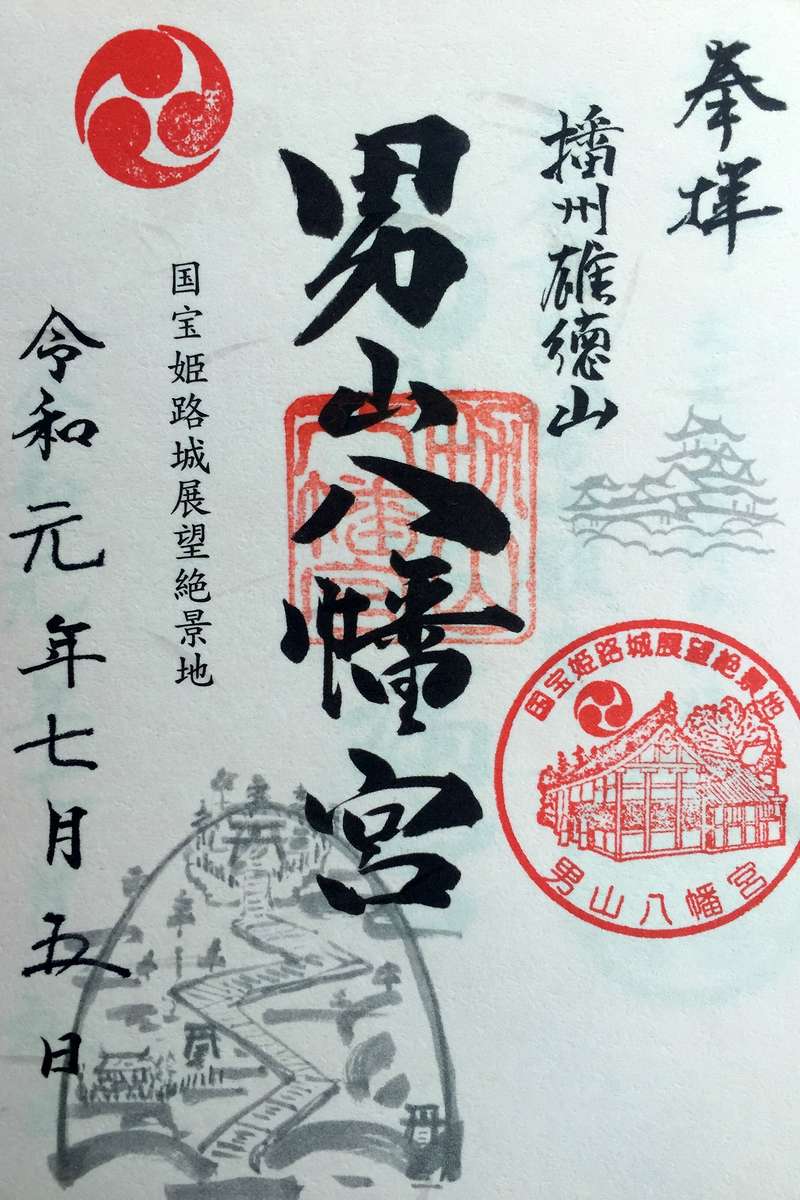 奉拝
播州雄徳山
男山八幡宮
国宝姫路城展望絶景地
令和元年七月五日
国宝姫路城展望絶景地
男山八幡宮